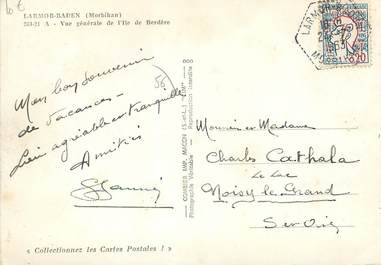 10 €
LARMOR-BADEN (Morbihan)
253-21 A - Vue générale de l'Ile de Berdère
56
Mon bon souvenir
de vacances -
Lieu agréable et tranquille
Amitiés
COMBIER IMP. MACON (S.-et-L.) "CIM"
Photographie Véritable - Reproduction interdite
LARMOR-BADEN
1963
0,20
Monsieur et Madame
Charles Cathala
Le Luc
Noisy le Grand
S et Oise
« Collectionnez les Cartes Postales ! »